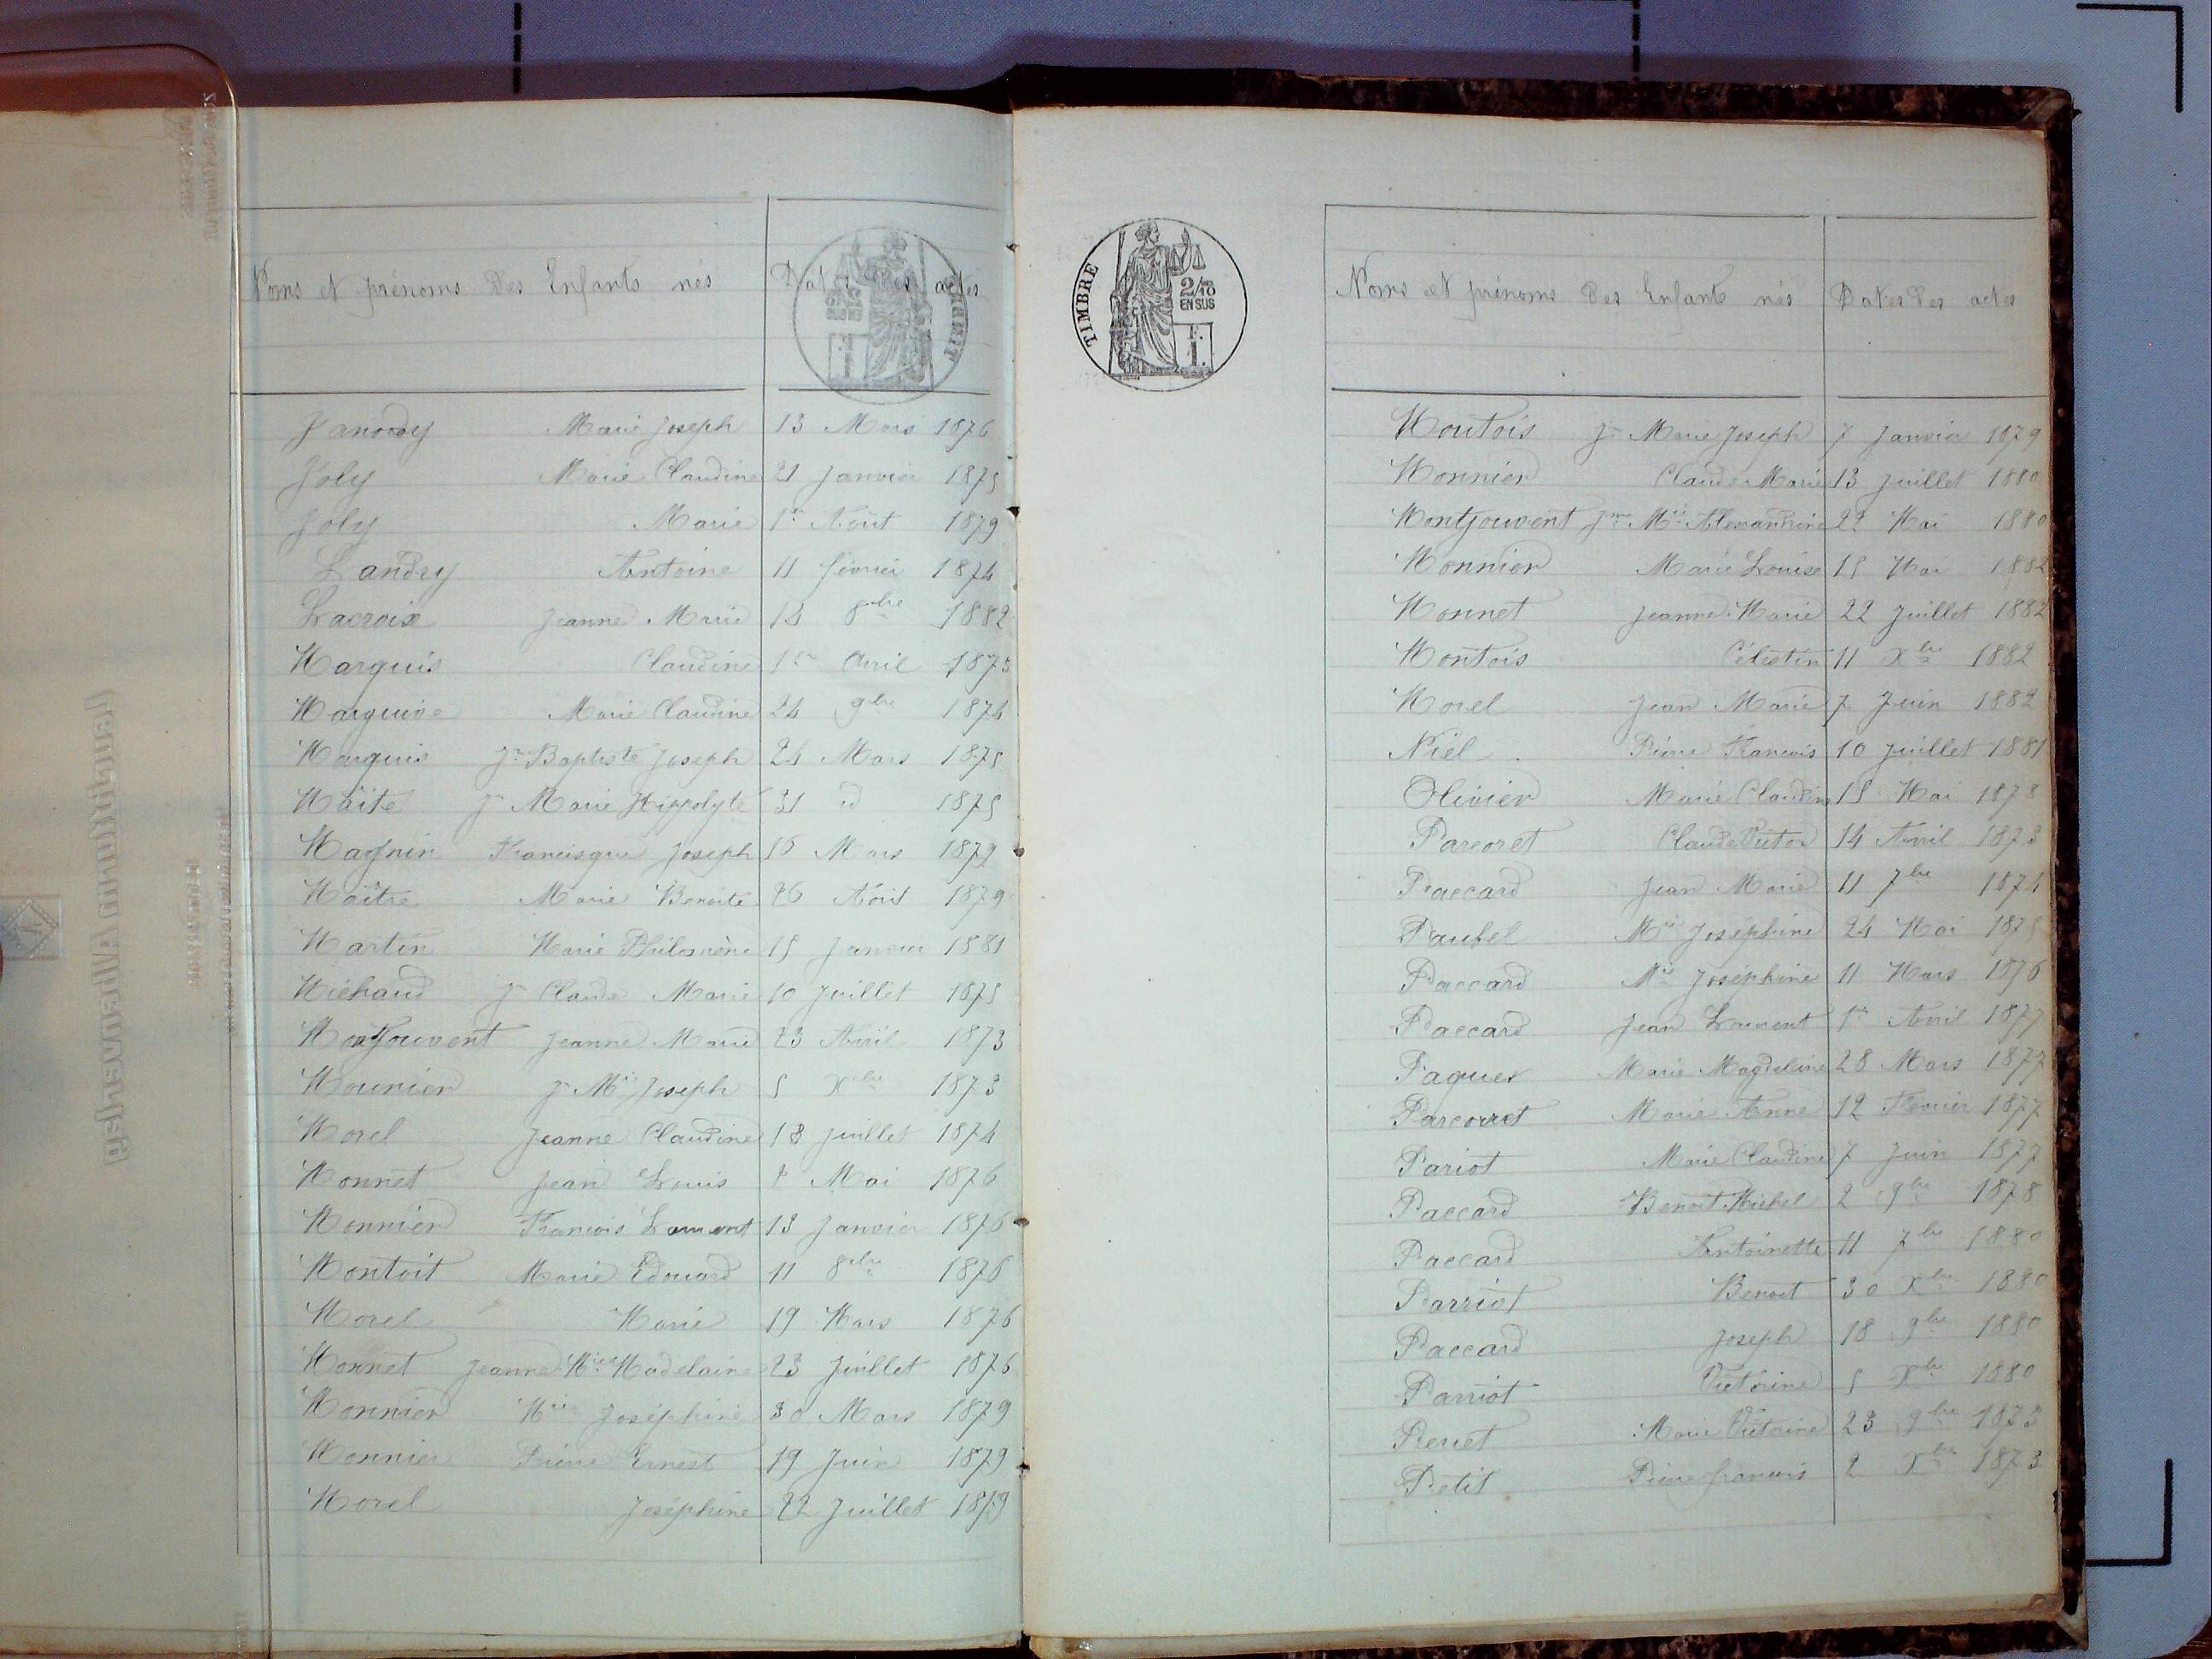 Noms et prénoms des Enfants nés Dates des actes
Janoray Marie Joseph 13 Mars 1876
Joly Marie Claudine 21 Janvier 1875
Joly Marie 1er Août 1879
Landry Antoine 11 février 1874
Lacroix Jeanne Marie 14 8bre 1882
Marquis Claudine 1er Avril 1873
Marquis Marie Claudine 24 9bre 1874
Marquis Jn Baptiste Joseph 24 Mars 1875
Maite Jn Marie Hippolyte 31 id 1875
Magnin Francisque Joseph 16 Mars 1879
Maître Marie Benoite 26 Août 1879
Martin Marie Philomène 15 Janvier 1881
Michaud Jn Claude Marie 10 Juillet 1875
Montjouvent Jeanne Marie 23 Avril 1873
Mounier Jn Mie Joseph 5 Xbre 1873
Morel Jeanne Claudine 18 Juillet 1874
Monnet Jean Louis Mai 1876
Monnier François Laurent 13 Janvier 1876
Montoit Marie Edouard 11 8bre 1876
Morel Marie 19 Mars 1876
Monnet Jeanne Mie Madelaine 23 Juillet 1876
Monnier Mie Joséphine 30 Mars 1879
Monnier Pierre Ernest 19 Juin 1879
Morel Joséphine 22 Juillet 1879
TIMBRE
2/10
EN SUS
1F.
Noms et prénoms des Enfants nés Dates des actes
Moutois Jn Marie Joseph 7 Janvier 1879
Monnier Claude Marie 13 Juillet 1880
Montjouvent Jne Mie Alexandrine 22 Mai 1880
Monnier Marie Louise 15 Mai 1882
Monnet Jeanne Marie 22 Juillet 1882
Montois Célestin 11 Xbre 1882
Morel Jean Marie 7 Juin 1882
Niël Pierre François 10 Juillet 1881
Olivier Marie Claudine 15 Mai 1878
Parcoret Claude Victor 14 Avril 1873
Paccard Jean Marie 11 7bre 1874
Paubel Mie Joséphine 24 Mai 1875
Paccard Mie Joséphine 11 Mars 1876
Paccard Jean Laurent 1er Avril 1877
Paques Marie Magdeleine 28 Mars 1877
Parcouret Marie Anne 12 Février 1877
Pariot Marie Claudine 7 Juin 1877
Paccard Benoit Michel 2 9bre 1878
Paccard Antoinette 11 7bre 1880
Parriot Benoit 30 Xbre 1880
Paccard Joseph 18 9bre 1880
Parriot Victorine 5 Xbre 1880
Perret Marie Victorine 23 9bre 1873
Petit Pierre françois 2 Xbre 1873